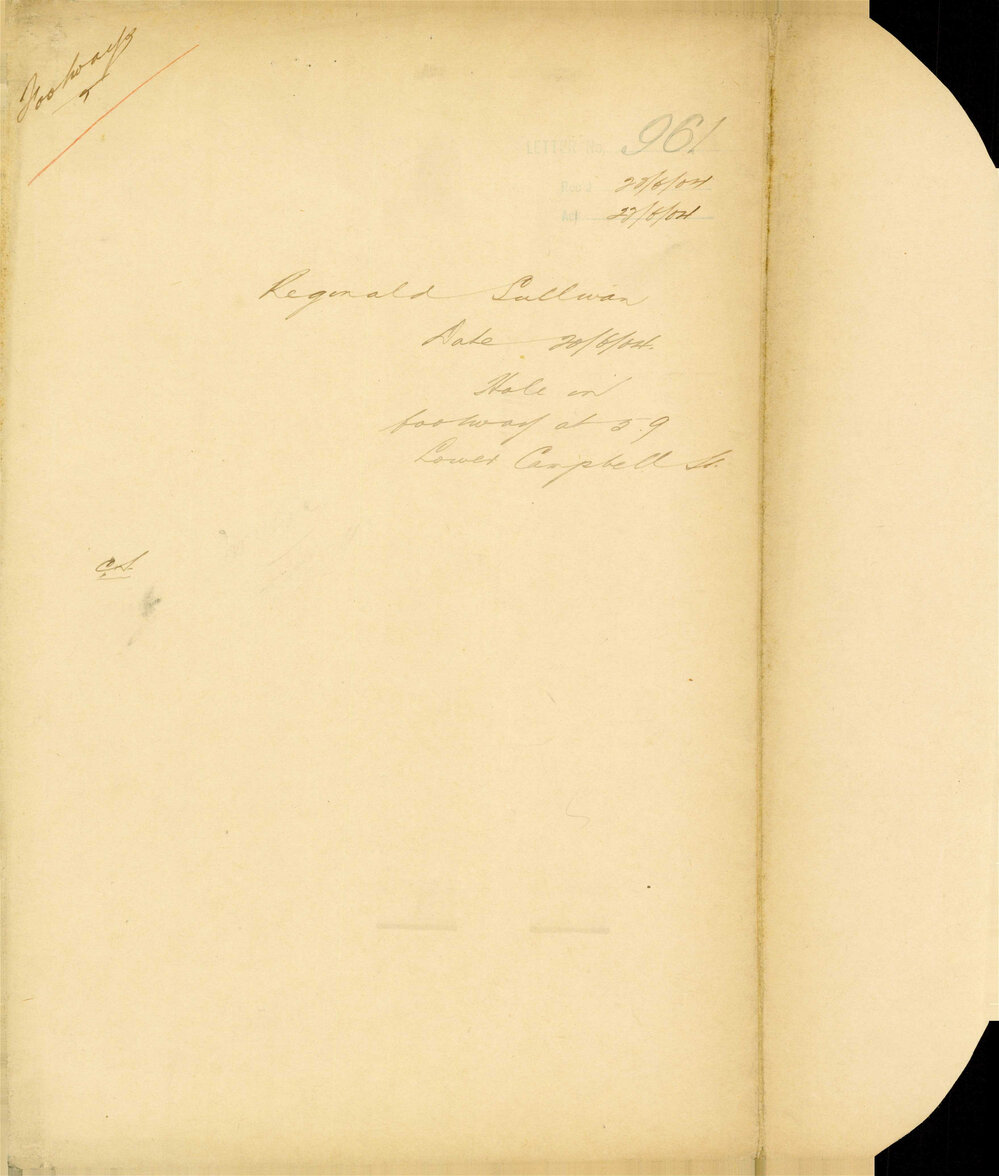 Footways
961
LETTER No.
Recd 20/6/04
Ad 22/6/04
Reginald Sullivan
Date 20/6/04.
Hole in
footway at 59
Lower Campbell St.